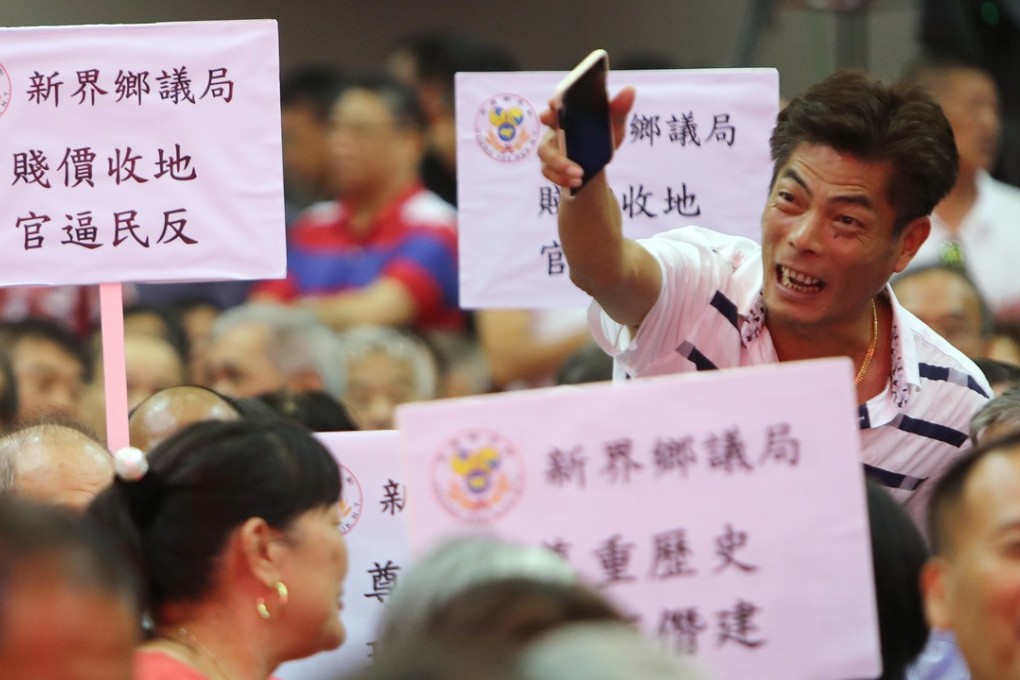 新界鄉議局
賤價收地
官逼民反
鄉議局
收地
新
尊
新界鄉議局
重歷史
僭建